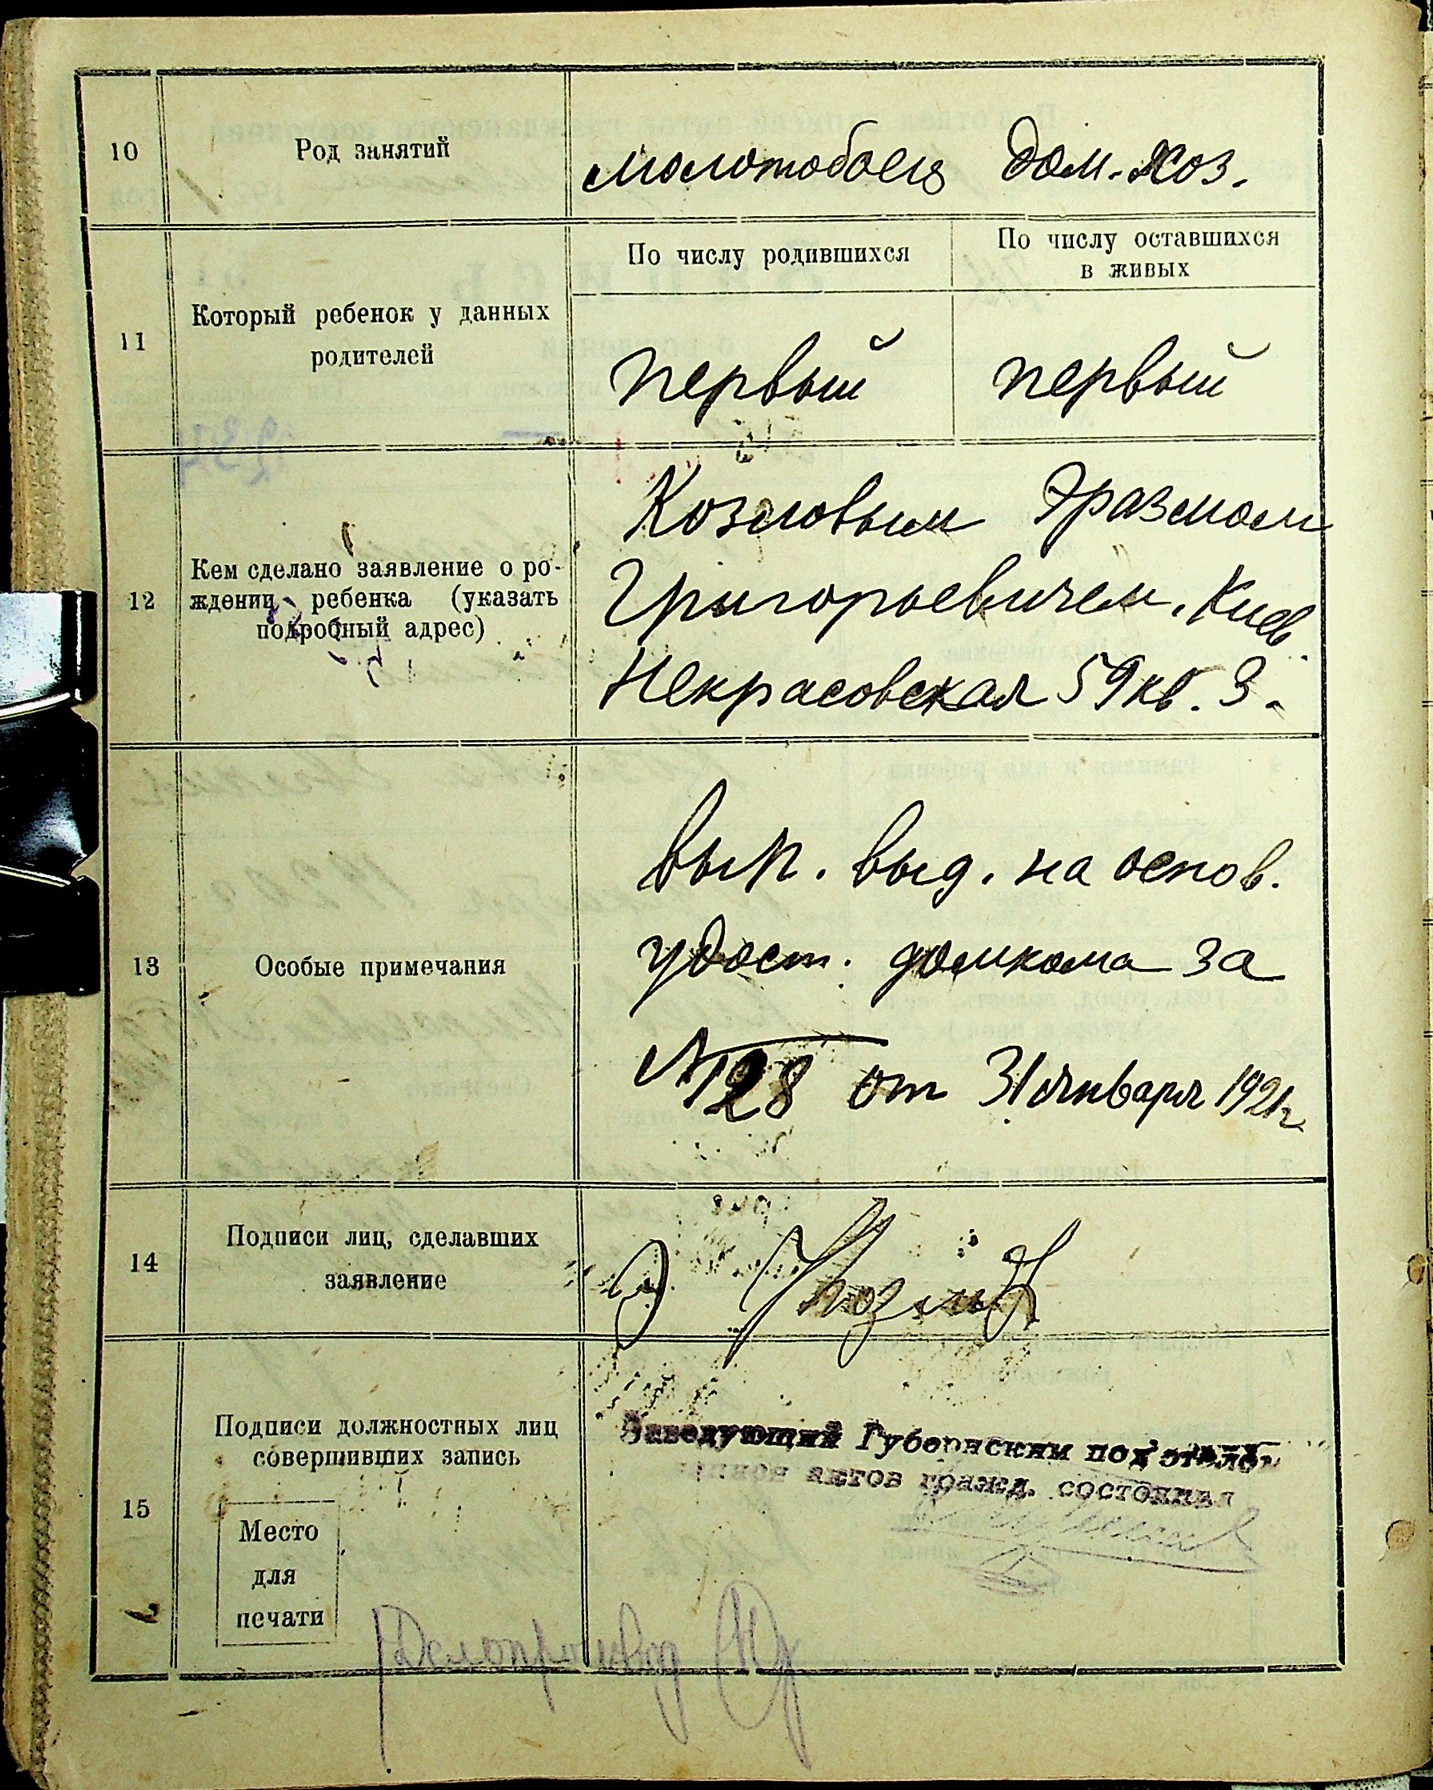 10 Род занятий молотобоец дом. хоз.
По числу родившихся
По числу оставшихся
в живых
11 Который ребенок у данных
родителей
первый первый
12 Кем сделано заявление о ро-
ждении ребенка (указать
подробный адрес)
Козловым Эразмом
Григорьевичем. Киев
Некрасовская 59 кв. 3.
13 Особые примечания
Вып. выд. на основ.
удост. домкома за
№ 128 от 31 января 1921 г.
14 Подписи лиц, сделавших
заявление
Э Козлов
15 Подписи должностных лиц
совершивших запись
Заведующий Губернским подотделом
записи актов гражд. состояния
Место
для
печати
Делопроизвод